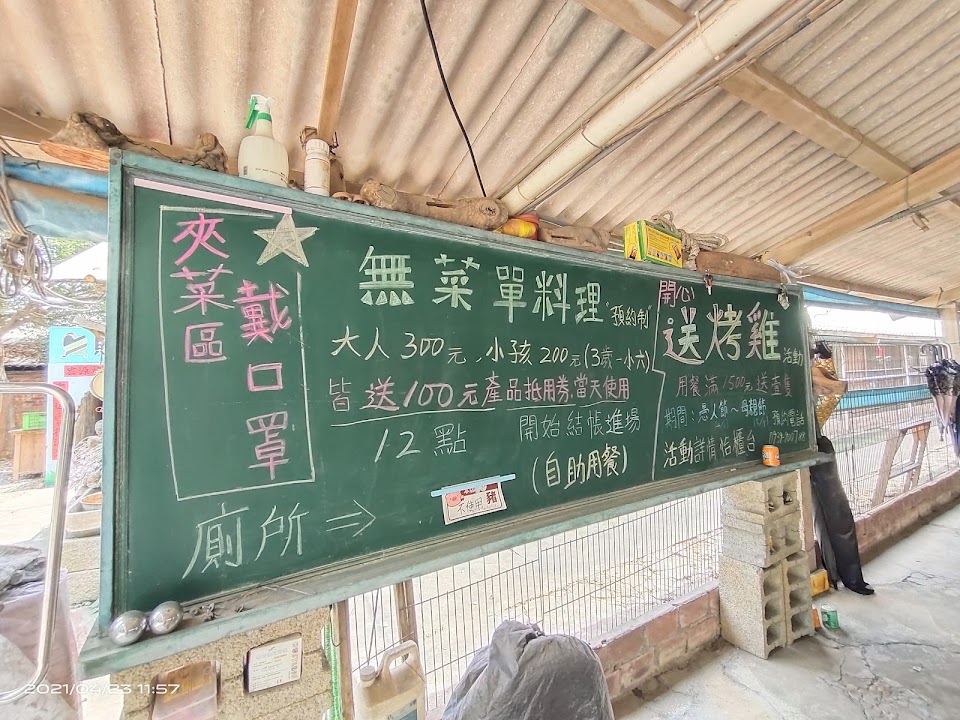 夾菜區
戴口罩
無菜單料理 預約制
大人300元.小孩200元(3歲-小六)
皆送100元產品抵用券,當天使用
12點 開始結帳進場
(自助用餐)
廁所⇒
不使用
豬
開心
送烤雞活動
用餐滿1500元送壹隻
期間:愚人節～母親節
活動詳情洽櫃台
預約電話
2021/04/23 11:57